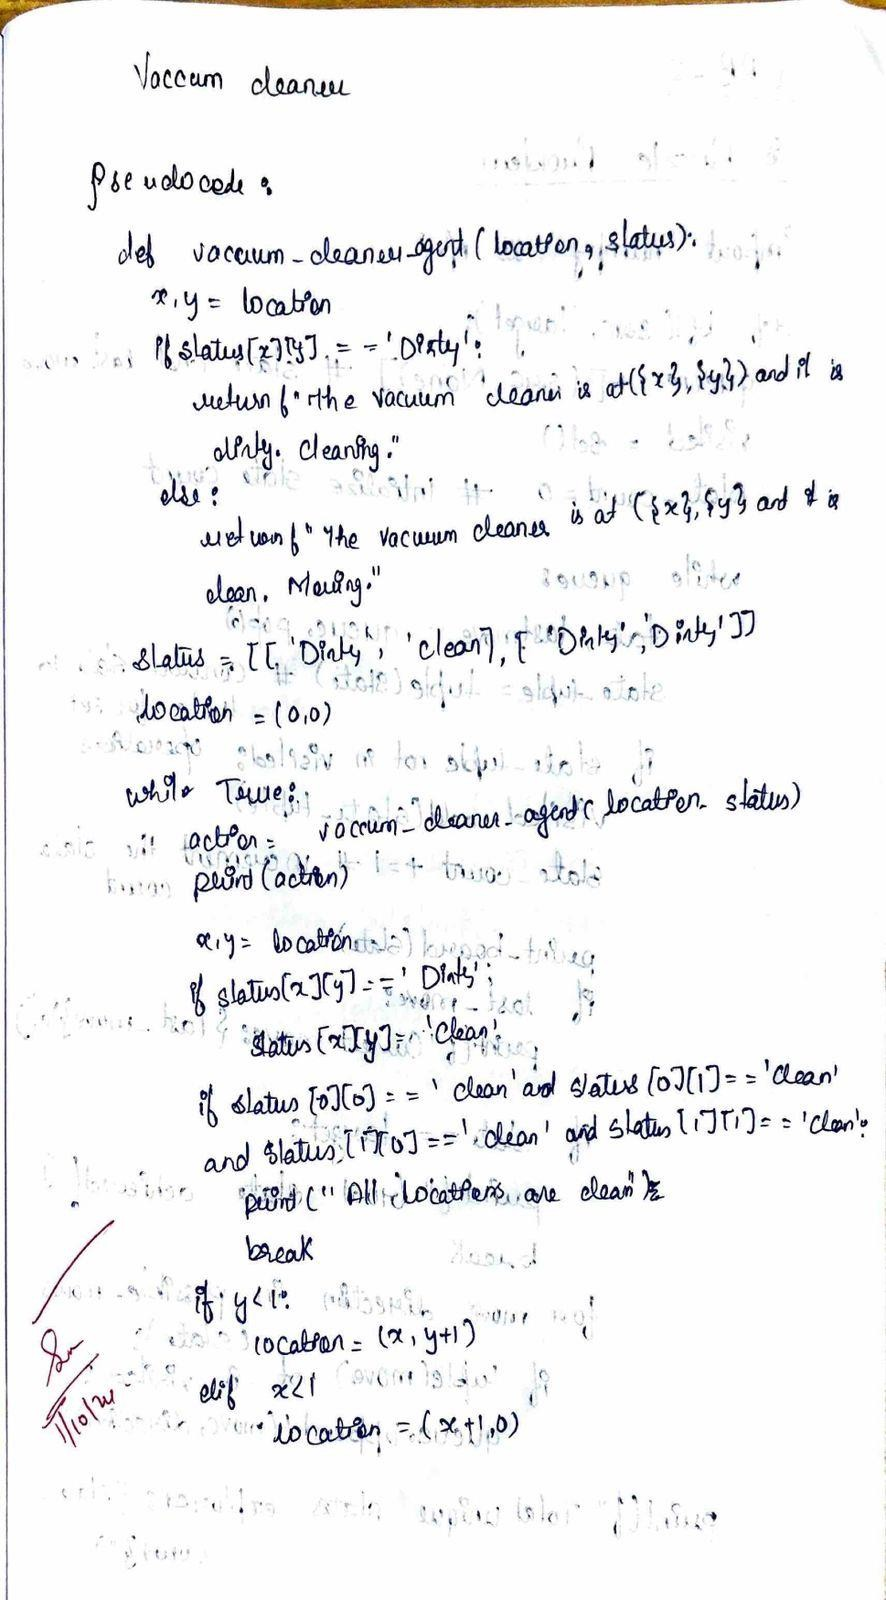 Vaccum cleaner
Pseudocode :
def vaccum_cleaner_agent (location, status):
x, y = location
if status[x][y] == 'Dirty':
return f"The vacuum cleaner is at ({x}, {y}) and it is
dirty. Cleaning."
else :
return f" The vacuum cleaner is at ({x}, {y} and it is
clean. Moving."
status = [[ 'Dirty', 'Clean'], [ 'Dirty', 'Dirty' ]]
location = (0,0)
while True:
action = vaccum_cleaner_agent( location_ status)
print (action)
x, y = location
if status[x][y] == 'Dirty' :
status [x][y] = 'Clean'
if status [0][0] == ' clean' and status [0][1] == 'clean'
and status [1][0] == ' clean' and status [1][1] == 'clean' :
print (" All locations are clean")
break
if y<1:
location = (x, y+1)
elif x<1
location = (x+1,0)
1/10/24